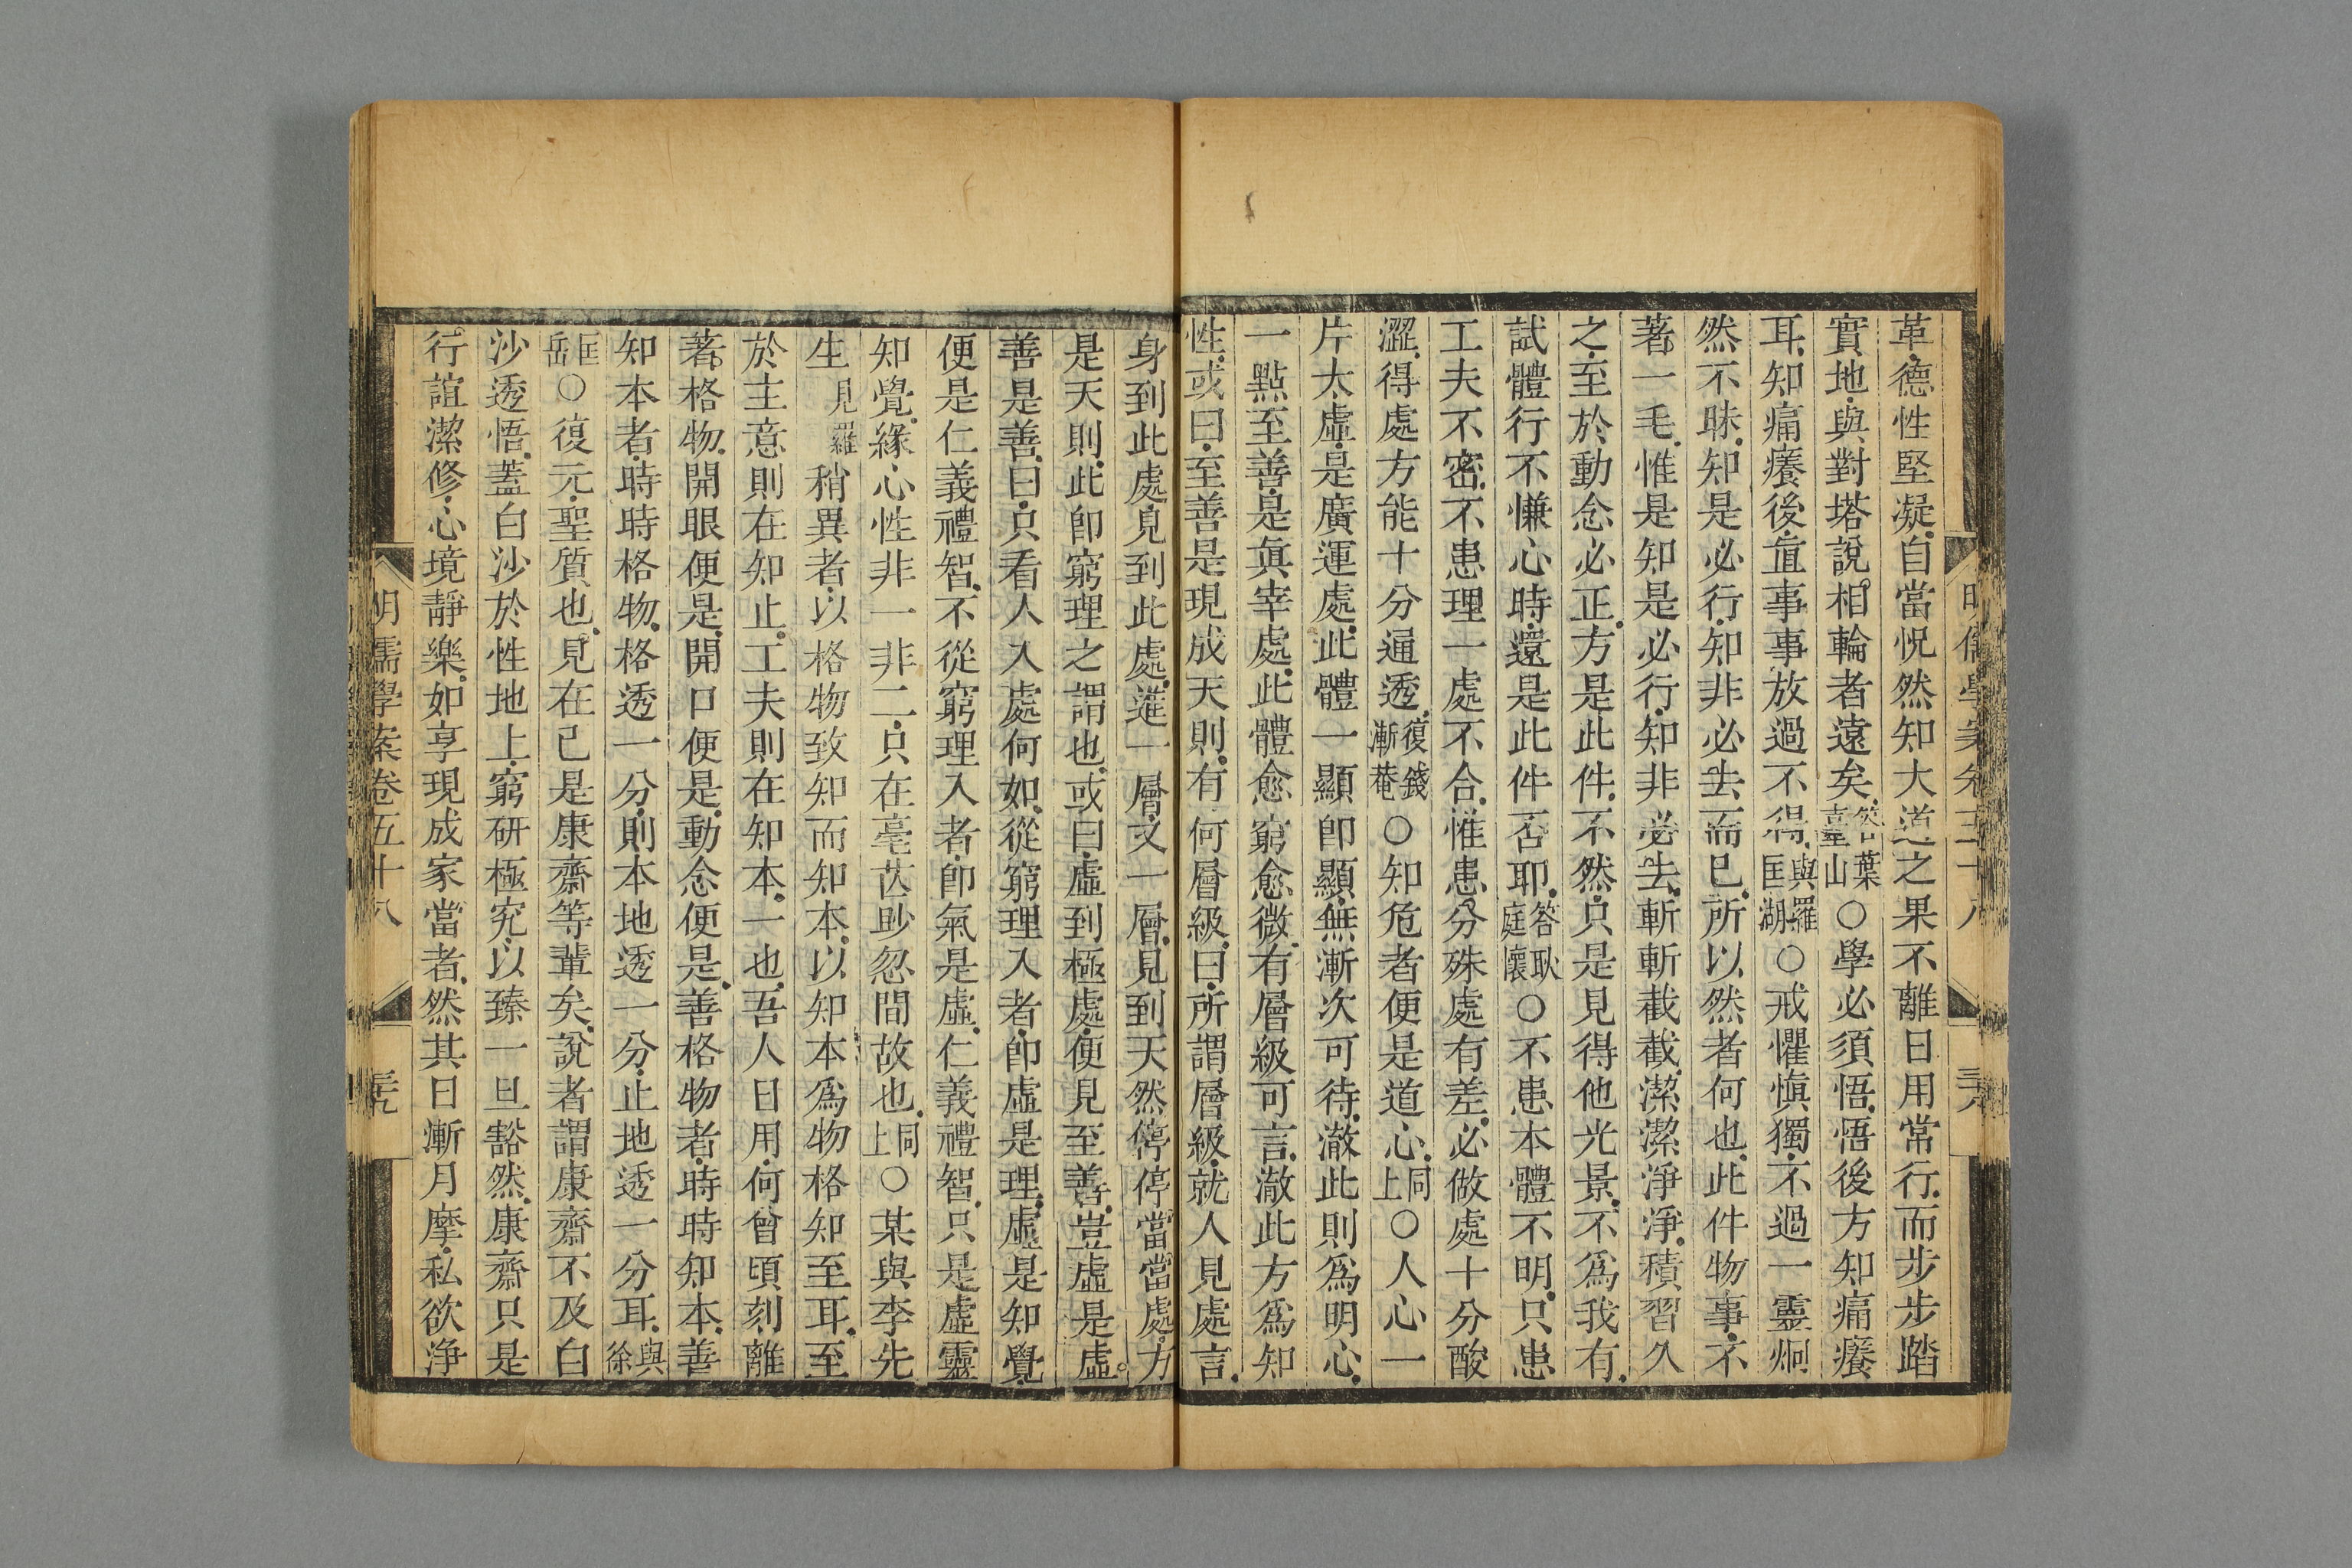 革德性堅凝自當怳然知大道之果不離日用常行而步步踏
實地與對塔說相輪者遠矣答葉臺山○學必須悟悟後方知痛癢
耳知痛癢後直事事放過不得與羅匡湖○戒懼慎獨不過一靈炯
然不昧知是必行知非必去而已所以然者何也此件物事不
著一毛惟是知是必行知非必去斬斬截截潔潔淨淨積習久
之至於動念必正方是此件不然只是見得他光景不爲我有
試體行不慊心時還是此件否耶答耿庭懷○不患本體不明只患
工夫不密不患理一處不合惟患分殊處有差必做處十分酸
澀得處方能十分通透復錢漸菴○知危者便是道心同上○人心一
片太虛是廣運處此體一顯卽顯無漸次可待澈此則爲明心
一點至善是眞宰處此體愈窮愈微有層級可言澈此方爲知
性或曰至善是現成天則有何層級曰所謂層級就人見處言
明儒學案卷五十八
三十八
身到此處見到此處進一層又一層見到天然停停當當處方
是天則此卽窮理之謂也或曰虛到極處便見至善豈虛是虛
善是善曰只看人入處何如從窮理入者卽虛是理虛是知覺
便是仁義禮智不從窮理入者卽氣是虛仁義禮智只是虛靈
知覺緣心性非一非二只在毫芒眇忽間故也同上○某與李先
生見羅稍異者以格物致知而知本以知本爲物格知至耳至
於主意則在知止工夫則在知本一也吾人日用何曾頃刻離
著格物開眼便是開口便是動念便是善格物者時時知本善
知本者時時格物格透一分則本地透一分止地透一分耳與徐
匡岳○復元聖質也見在己是康齋等輩矣說者謂康齋不及白
沙透悟蓋白沙於性地上窮研極究以臻一旦豁然康齋只是
行誼潔修心境靜樂如享現成家當者然其日漸月摩私欲淨
明儒學案卷五十八
三十九